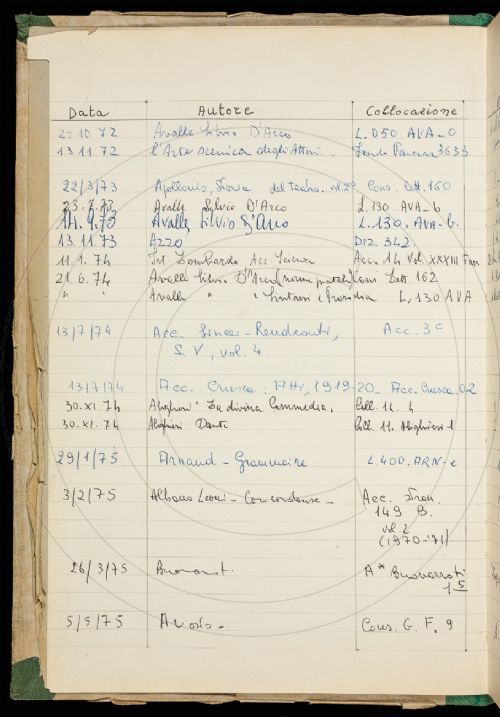 Data Autore Collocazione
20.10.72 Avalle Silvio D'Arco L.050 AVA-0
13.11.72 l'Arte scenica degli Attori.. 3633
22/3/73 Apollonio, Storia del teatro.. vol. 2° Cons. Lett. 160
23.7.73 Avalle Silvio D'Arco L.130. AVA-b
14.9.73 Avalle Silvio D'Arco L.130. AVA-b.
13.11.73 Azzo Diz. 342
11.1.74 Ist. Lombardo Acc. Scienze Acc. 14 Vol. XXXIII
21.6.74 Avalle Silvio D'Arco Cons Lett 162
" " Avalle " " Sintassi e Prosodia L,130 AVA
13/7/74 Acc. Lincei - Rendiconti, Acc. 3c
S. V, vol. 4
13/7/74 Acc. Crusca. Atti, 1919-20 Acc. Crusca. 02
30.XI.74 Alighieri La divina Commedia. Coll. 11. 4
30.XI.74 Alighieri Dante Coll. 11. Alighieri 1
29/1/75 Arnaud - Grammaire L.400. ARN-e
3/2/75 Albano Leoni - Concordanze - Acc.
149 B.
vol. 2
(1970-'71)
26/3/75 A* Buonarroti
5/5/75 Cons. G. F. 9